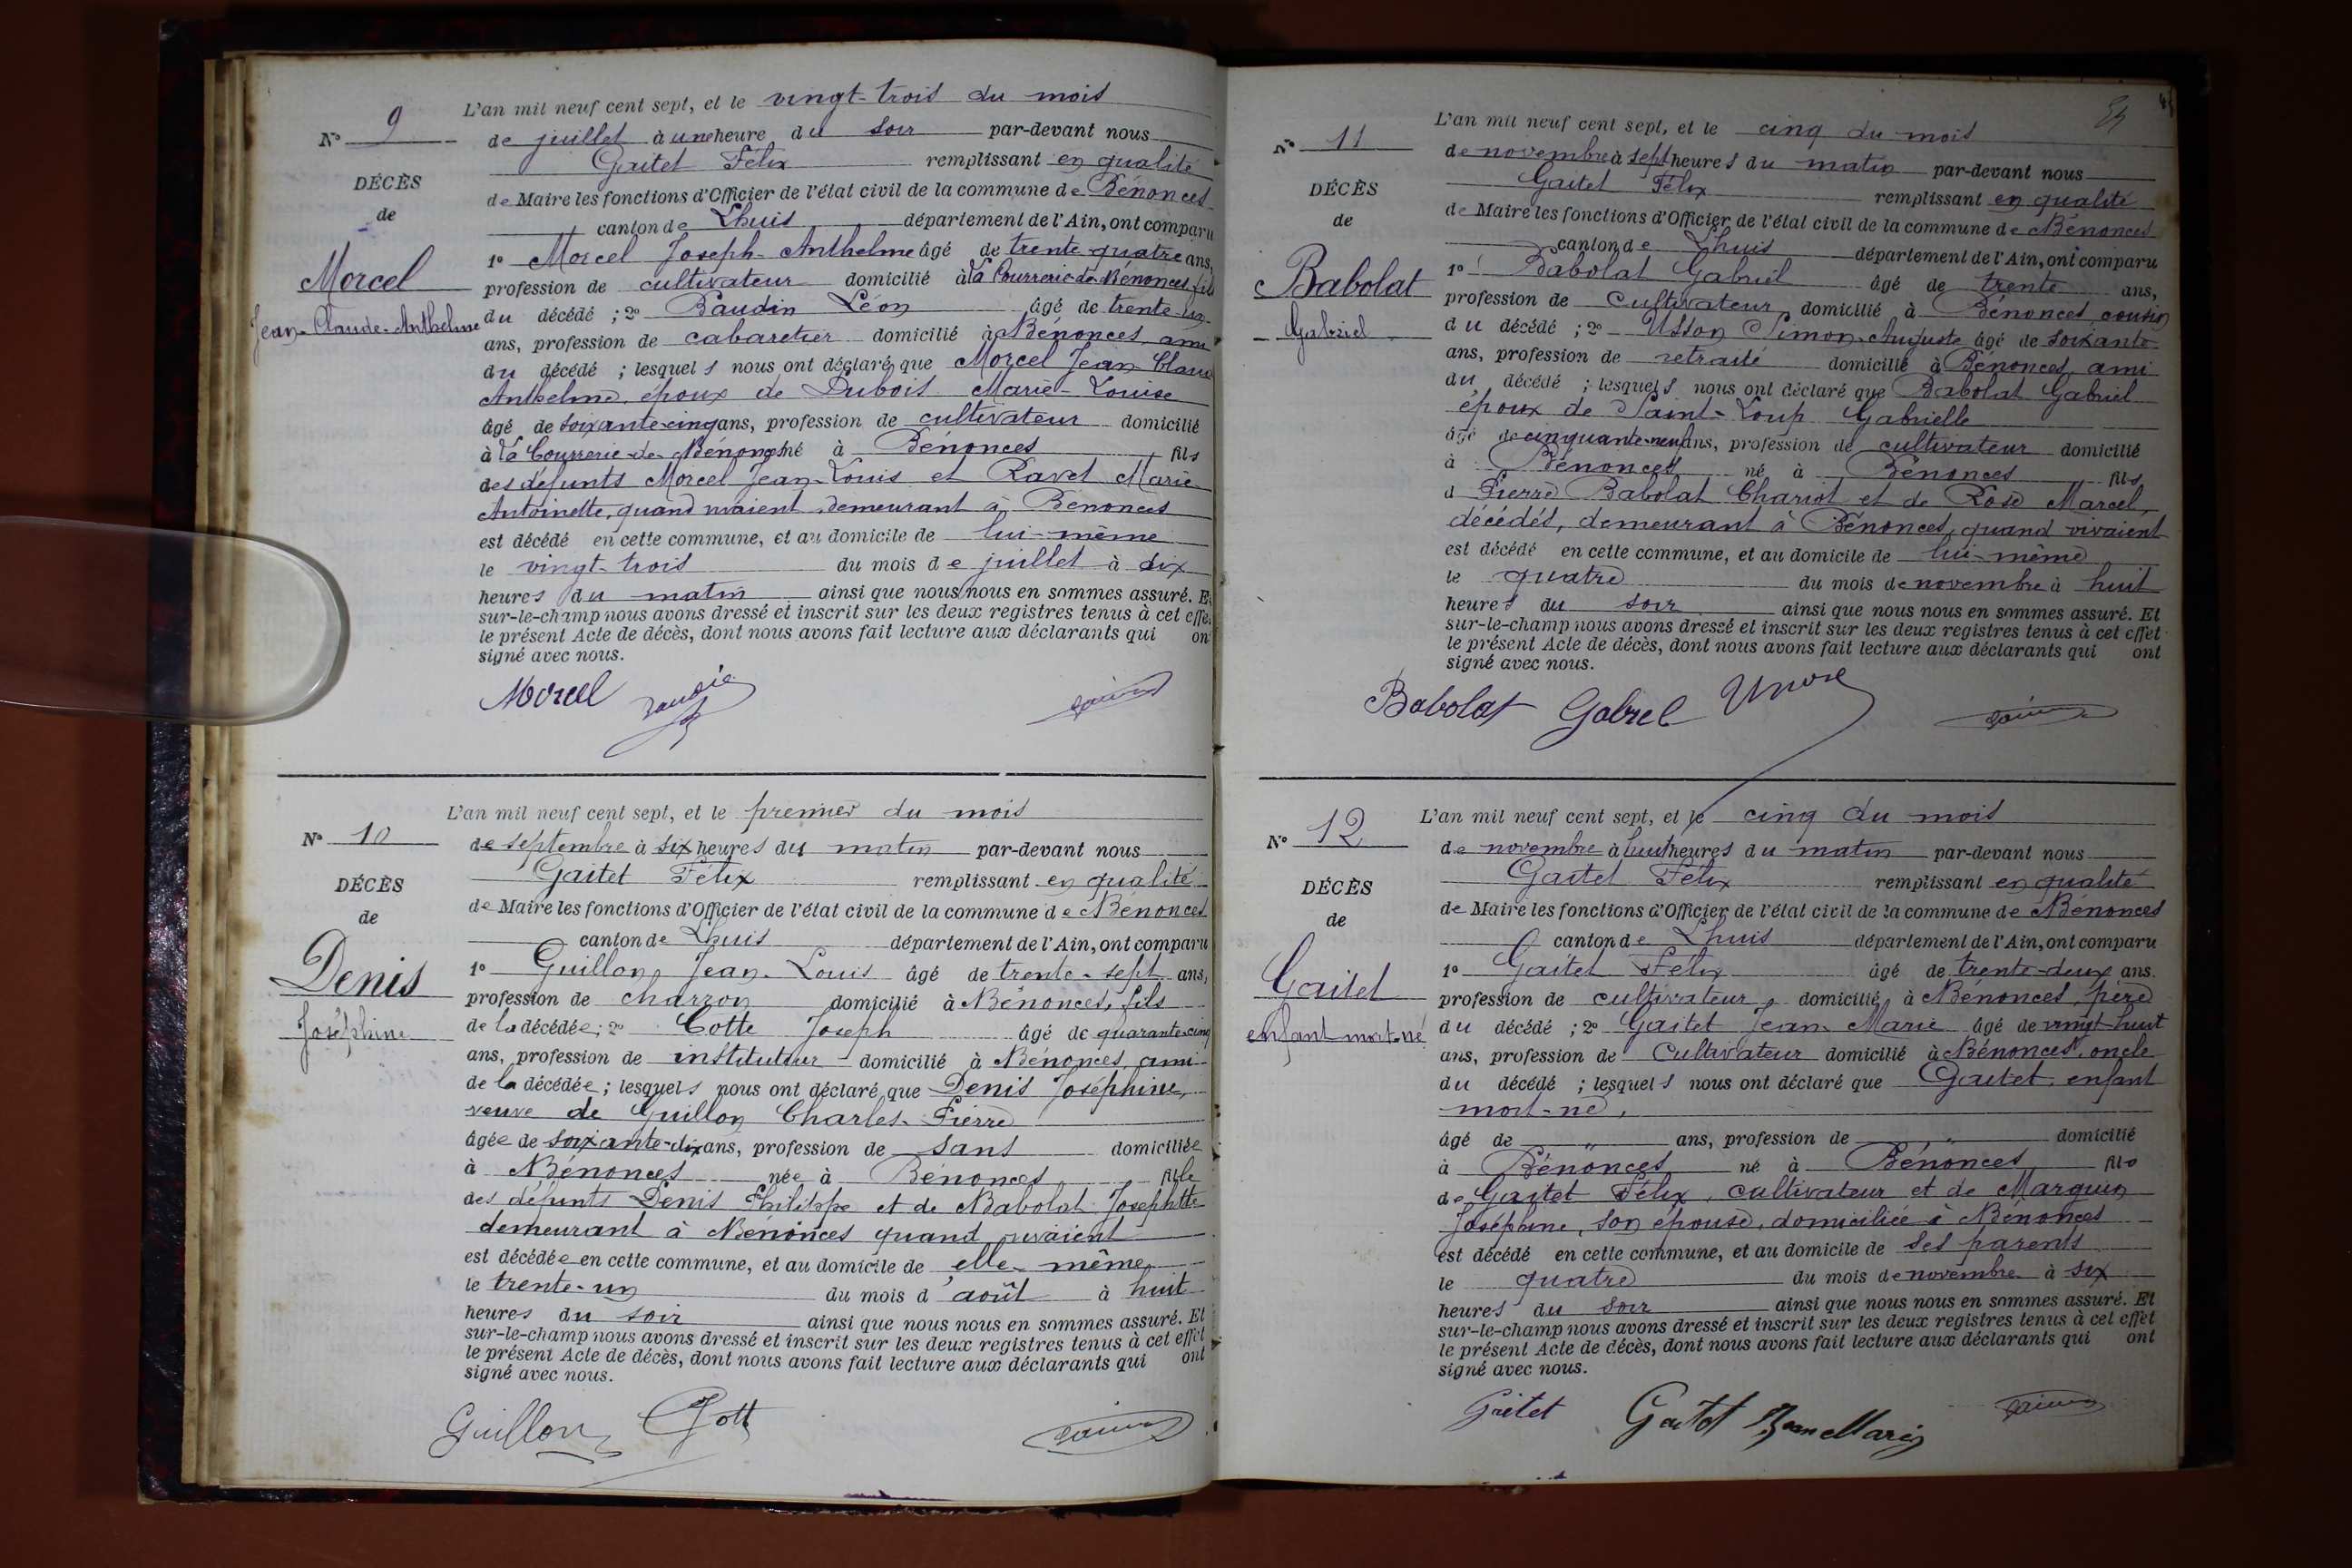 N° 9
DÉCÈS
de
Morcel
Jean-Claude-Anthelme
L'an mil neuf cent sept, et le vingt-trois du mois
de juillet à une heure du soir par-devant nous
Gaitet Félix remplissant en qualité
de Maire les fonctions d'Officier de l'état civil de la commune de Bénonces
canton de Lhuis département de l'Ain, ont comparu
1° Morcel Joseph-Anthelme âgé de trente-quatre ans,
profession de cultivateur domicilié à la Courrerie-de-Bénonces fils
du décédé ; 2° Baudin Léon âgé de trente-un
ans, profession de cabaretier domicilié à Bénonces, ami
du décédé ; lesquels nous ont déclaré que Morcel Jean-Claude
Anthelme, époux de Dubois Marie-Louise
âgé de soixante-cinq ans, profession de cultivateur domicilié
à la Courrerie-de-Bénonces né à Bénonces fils
des défunts Morcel Jean-Louis et Ravet Marie
Antoinette, quand vivaient demeurant à Bénonces
est décédé en cette commune, et au domicile de lui-même
le vingt-trois du mois de juillet à dix
heures du matin ainsi que nous nous en sommes assuré. E
sur-le-champ nous avons dressé et inscrit sur les deux registres tenus à cet effe
le présent Acte de décès, dont nous avons fait lecture aux déclarants qui on
signé avec nous.
Morcel Baudin
N° 10
DÉCÈS
de
Denis
Joséphine
L'an mil neuf cent sept, et le premier du mois
de septembre à six heures du matin par-devant nous
Gaitet Félix remplissant en qualité
de Maire les fonctions d'Officier de l'état civil de la commune de Bénonces
canton de Lhuis département de l'Ain, ont comparu
1° Guillon Jean-Louis âgé de trente-sept ans,
profession de charron domicilié à Bénonces, fils
de la décédée ; 2° Cotte Joseph âgé de quarante-cinq
ans, profession de instituteur domicilié à Bénonces, ami
de la décédée ; lesquels nous ont déclaré que Denis Joséphine,
veuve de Guillon Charles-Pierre
âgée de soixante-dix ans, profession de sans domiciliée
à Bénonces née à Bénonces fille
des défunts Denis Philippe et de Babolat Josephtte
demeurant à Bénonces quand vivaient
est décédée en cette commune, et au domicile de elle-même
le trente-un du mois d'août à huit
heures du soir ainsi que nous nous en sommes assuré. Et
sur-le-champ nous avons dressé et inscrit sur les deux registres tenus à cet effet
le présent Acte de décès, dont nous avons fait lecture aux déclarants qui ont
signé avec nous.
Guillon Cott
N° 11
DÉCÈS
de
Babolat
Gabriel
L'an mil neuf cent sept, et le cinq du mois
de novembre à sept heures du matin par-devant nous
Gaitet Félix remplissant en qualité
de Maire les fonctions d'Officier de l'état civil de la commune de Bénonces
canton de Lhuis département de l'Ain, ont comparu
1° Babolat Gabriel âgé de trente ans,
profession de Cultivateur domicilié à Bénonces, cousin
du décédé ; 2° Usson Simon-Auguste âgé de soixante
ans, profession de retraité domicilié à Bénonces, ami
du décédé ; lesquels nous ont déclaré que Babolat Gabriel
époux de Saint-Loup Gabrielle
âgé de cinquante-neuf ans, profession de cultivateur domicilié
à Bénonces né à Bénonces fils
d Pierre Babolat Chariot et de Rose Marcel,
décédés, demeurant à Bénonces, quand vivaient
est décédé en cette commune, et au domicile de lui-même
le quatre du mois de novembre à huit
heures du soir ainsi que nous nous en sommes assuré. Et
sur-le-champ nous avons dressé et inscrit sur les deux registres tenus à cet effet
le présent Acte de décès, dont nous avons fait lecture aux déclarants qui ont
signé avec nous.
Babolat Gabrel
N° 12
DÉCÈS
de
Gaitet
enfant mort-né
L'an mil neuf cent sept, et le cinq du mois
de novembre à huit heures du matin par-devant nous
Gaitet Félix remplissant en qualité
de Maire les fonctions d'Officier de l'état civil de la commune de Bénonces
canton de Lhuis département de l'Ain, ont comparu
1° Gaitet Félix âgé de trente-deux ans.
profession de cultivateur, domicilié à Bénonces, père
du décédé ; 2° Gaitet Jean-Marie âgé de vingt-huit
ans, profession de Cultivateur domicilié à Bénonces, oncle
du décédé ; lesquels nous ont déclaré que Gaitet, enfant
mort-né,
âgé de " ans, profession de " domicilié
à Bénonces né à Bénonces fils
de Gaitet Félix, cultivateur et de Marguin
Joséphine, son épouse, domiciliée à Bénonces
est décédé en cette commune, et au domicile de ses parents
le quatre du mois de novembre à six
heures du soir ainsi que nous nous en sommes assuré. Et
sur-le-champ nous avons dressé et inscrit sur les deux registres tenus à cet effet
le présent Acte de décès, dont nous avons fait lecture aux déclarants qui ont
signé avec nous.
Gaitet Gaitet Jean Marie